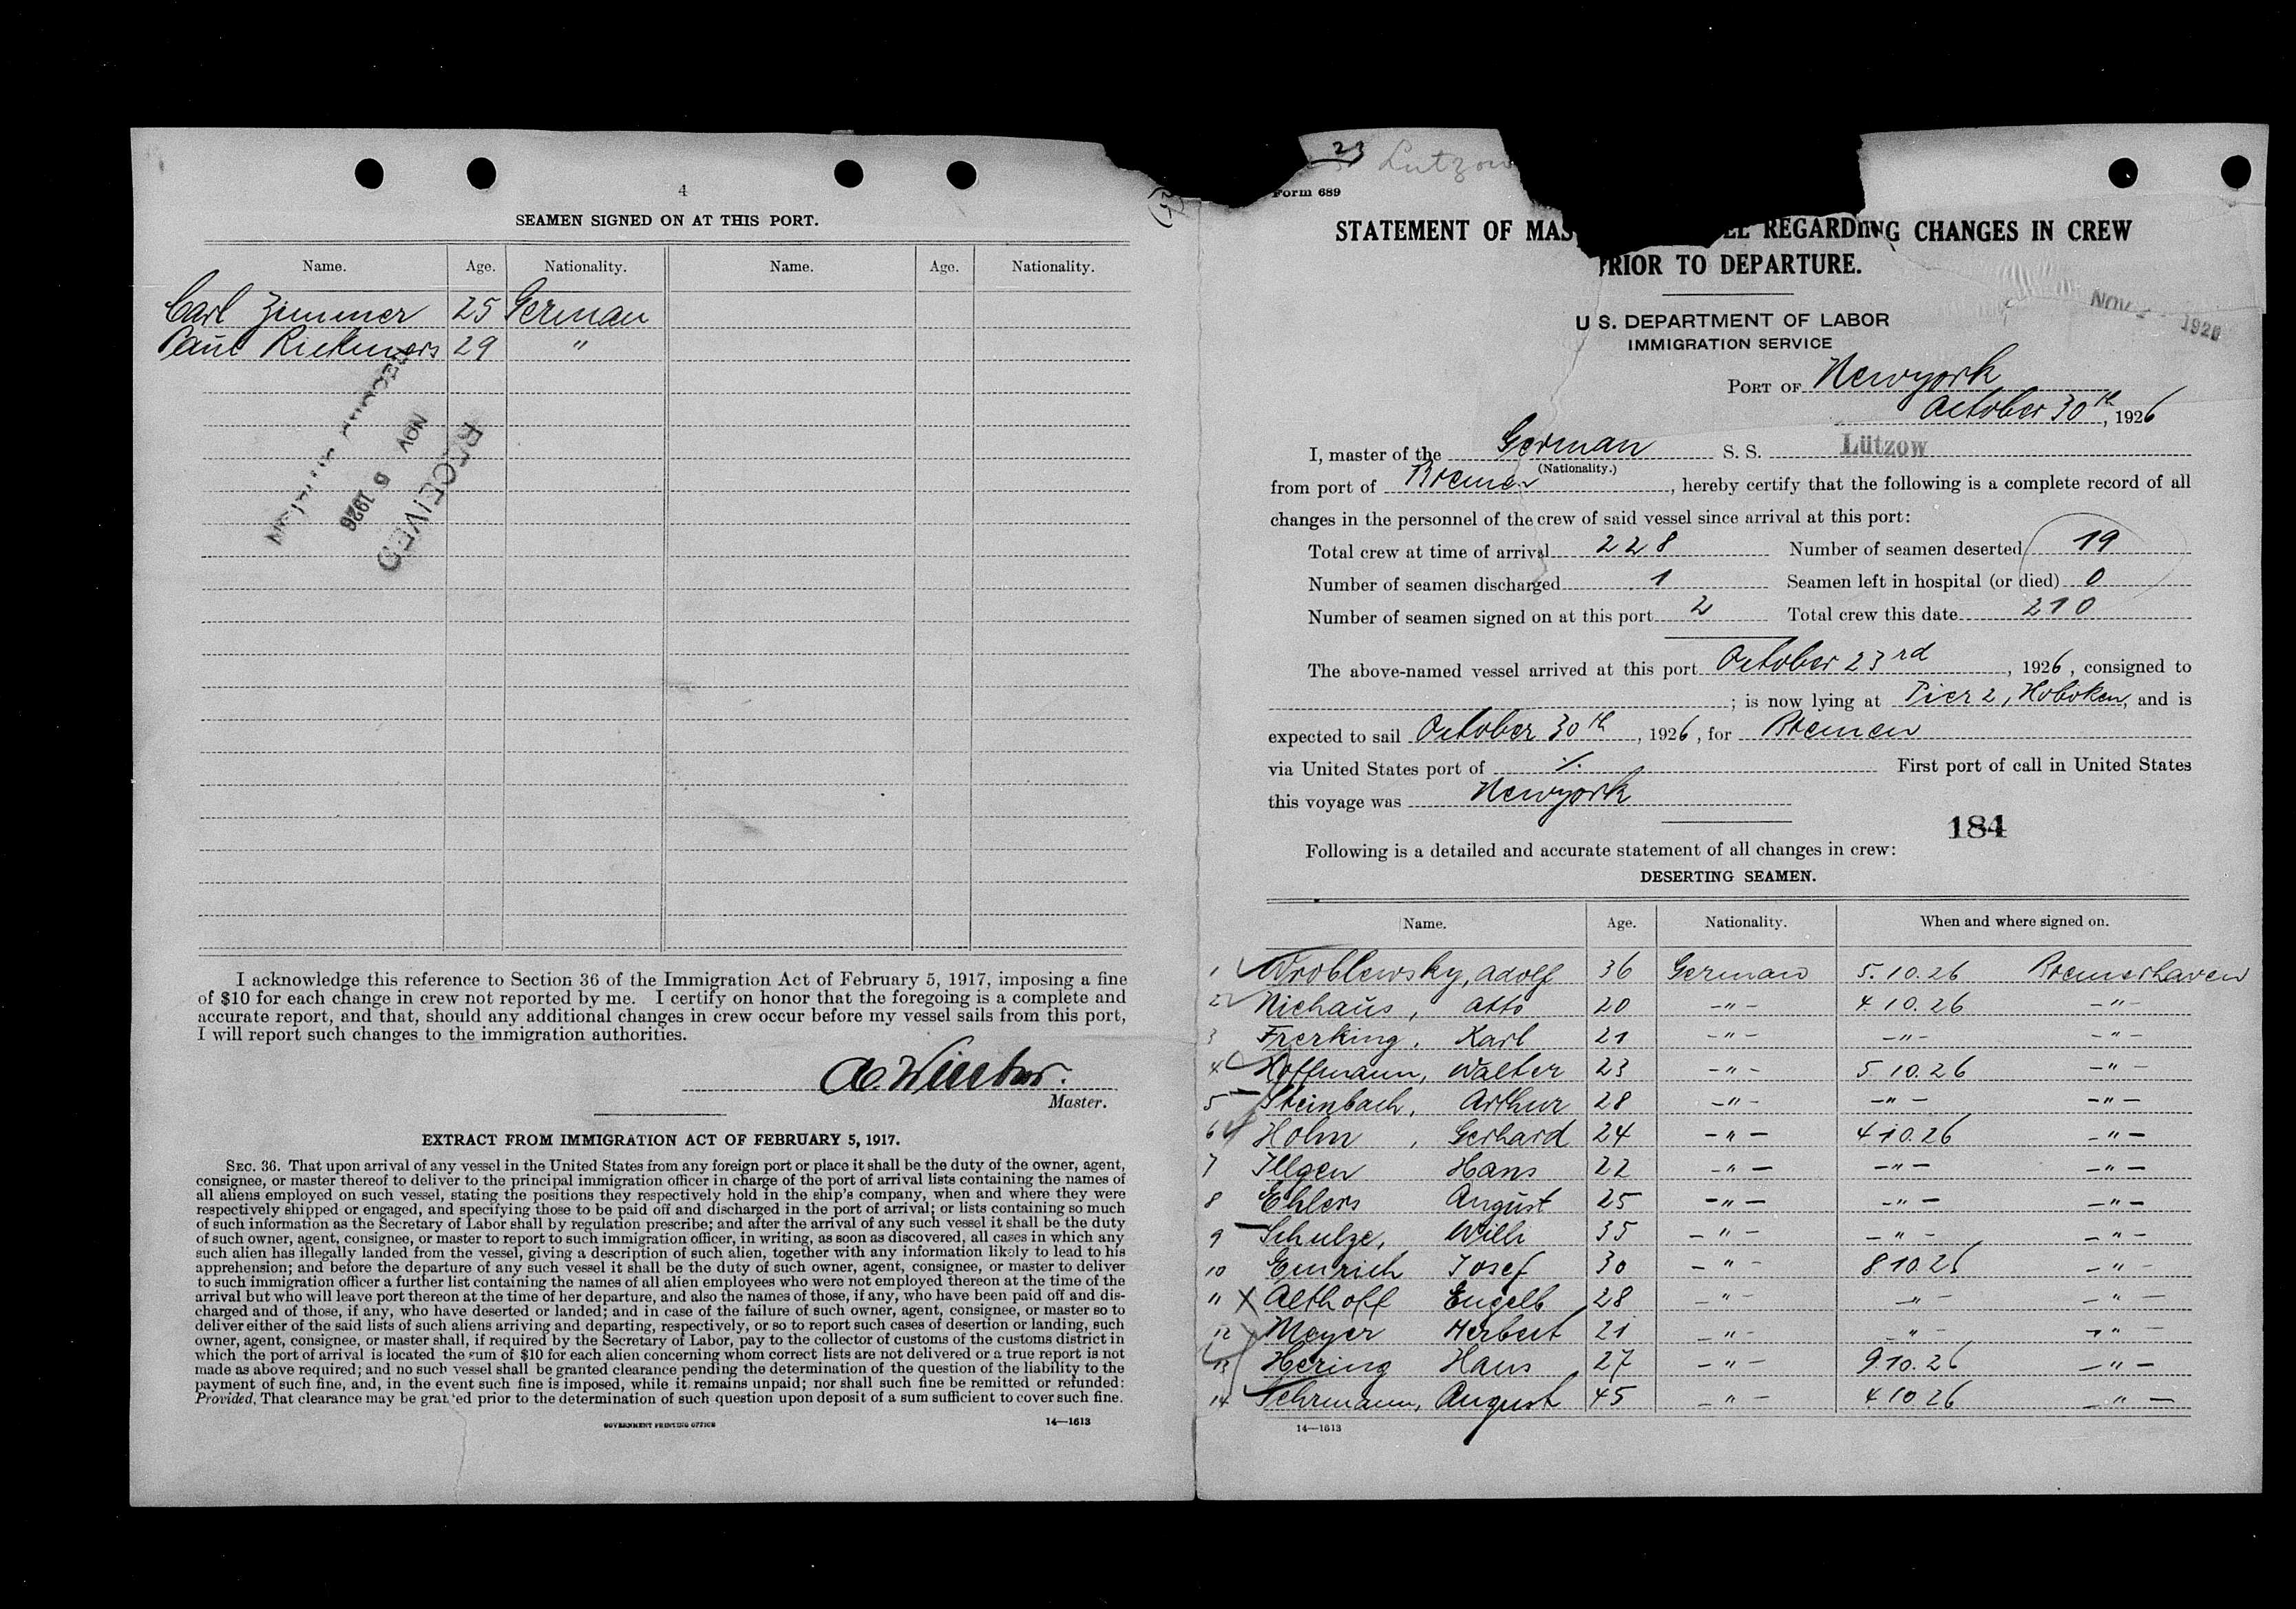 4
SEAMEN SIGNED ON AT THIS PORT.
Name. Age. Nationality. Name. Age. Nationality.
Carl Zimmer 25 German
Paul Rickmers 29 "
RECEIVED
NOV 6 1926
I acknowledge this reference to Section 36 of the Immigration Act of February 5, 1917, imposing a fine
of $10 for each change in crew not reported by me. I certify on honor that the foregoing is a complete and
accurate report, and that, should any additional changes in crew occur before my vessel sails from this port,
I will report such changes to the immigration authorities.
Master.
EXTRACT FROM IMMIGRATION ACT OF FEBRUARY 5, 1917.
SEC. 36. That upon arrival of any vessel in the United States from any foreign port or place it shall be the duty of the owner, agent,
consignee, or master thereof to deliver to the principal immigration officer in charge of the port of arrival lists containing the names of
all aliens employed on such vessel, stating the positions they respectively hold in the ship's company, when and where they were
respectively shipped or engaged, and specifying those to be paid off and discharged in the port of arrival; or lists containing so much
of such information as the Secretary of Labor shall by regulation prescribe; and after the arrival of any such vessel it shall be the duty
of such owner, agent, consignee, or master to report to such immigration officer, in writing, as soon as discovered, all cases in which any
such alien has illegally landed from the vessel, giving a description of such alien, together with any information likely to lead to his
apprehension; and before the departure of any such vessel it shall be the duty of such owner, agent, consignee, or master to deliver
to such immigration officer a further list containing the names of all alien employees who were not employed thereon at the time of the
arrival but who will leave port thereon at the time of her departure, and also the names of those, if any, who have been paid off and dis-
charged and of those, if any, who have deserted or landed; and in case of the failure of such owner, agent, consignee, or master so to
deliver either of the said lists of such aliens arriving and departing, respectively, or so to report such cases of desertion or landing, such
owner, agent, consignee, or master shall, if required by the Secretary of Labor, pay to the collector of customs of the customs district in
which the port of arrival is located the sum of $10 for each alien concerning whom correct lists are not delivered or a true report is not
made as above required; and no such vessel shall be granted clearance pending the determination of the question of the liability to the
payment of such fine, and, in the event such fine is imposed, while it remains unpaid; nor shall such fine be remitted or refunded:
Provided, That clearance may be granted prior to the determination of such question upon deposit of a sum sufficient to cover such fine.
GOVERNMENT PRINTING OFFICE 14—1613
23 Lutzow
Form 689
STATEMENT OF MAS REGARDING CHANGES IN CREW
PRIOR TO DEPARTURE.
U. S. DEPARTMENT OF LABOR
IMMIGRATION SERVICE
NOV 1926
PORT OF Newyork
October 30th, 1926
I, master of the German S. S. Lützow
(Nationality.)
from port of Bremen, hereby certify that the following is a complete record of all
changes in the personnel of the crew of said vessel since arrival at this port:
Total crew at time of arrival 228 Number of seamen deserted 19
Number of seamen discharged 1 Seamen left in hospital (or died) 0
Number of seamen signed on at this port 2 Total crew this date 210
The above-named vessel arrived at this port October 23rd, 1926, consigned to
; is now lying at Pier 2, Hoboken, and is
expected to sail October 30th, 1926, for Bremen
via United States port of ./. First port of call in United States
this voyage was Newyork
184
Following is a detailed and accurate statement of all changes in crew:
DESERTING SEAMEN.
Name. Age. Nationality. When and where signed on.
1 Wroblewsky, Adolf 36 German 5.10.26 Bremerhaven
2 Niehaus, Otto 20 -"- 4.10.26 -"-
3 Frerking, Karl 21 -"- -"- -"-
4 Hoffmann, Walter 23 -"- 5.10.26 -"-
5 Steinbach, Arthur 28 -"- -"- -"-
6 Holm, Gerhard 24 -"- 4.10.26 -"-
7 Illgen Hans 22 -"- -"- -"-
8 Ehlers August 25 -"- -"- -"-
9 Schulze, Willi 35 -"- -"- -"-
10 Emrich Josef 30 -"- 8.10.26 -"-
11 X Althoff Engelb 28 -"- -"- -"-
12 Meyer Herbert 21 -"- -"- -"-
13 Hering Hans 27 -"- 9.10.26 -"-
14 Sehrmann, August 45 -"- 4.10.26 -"-
14—1613